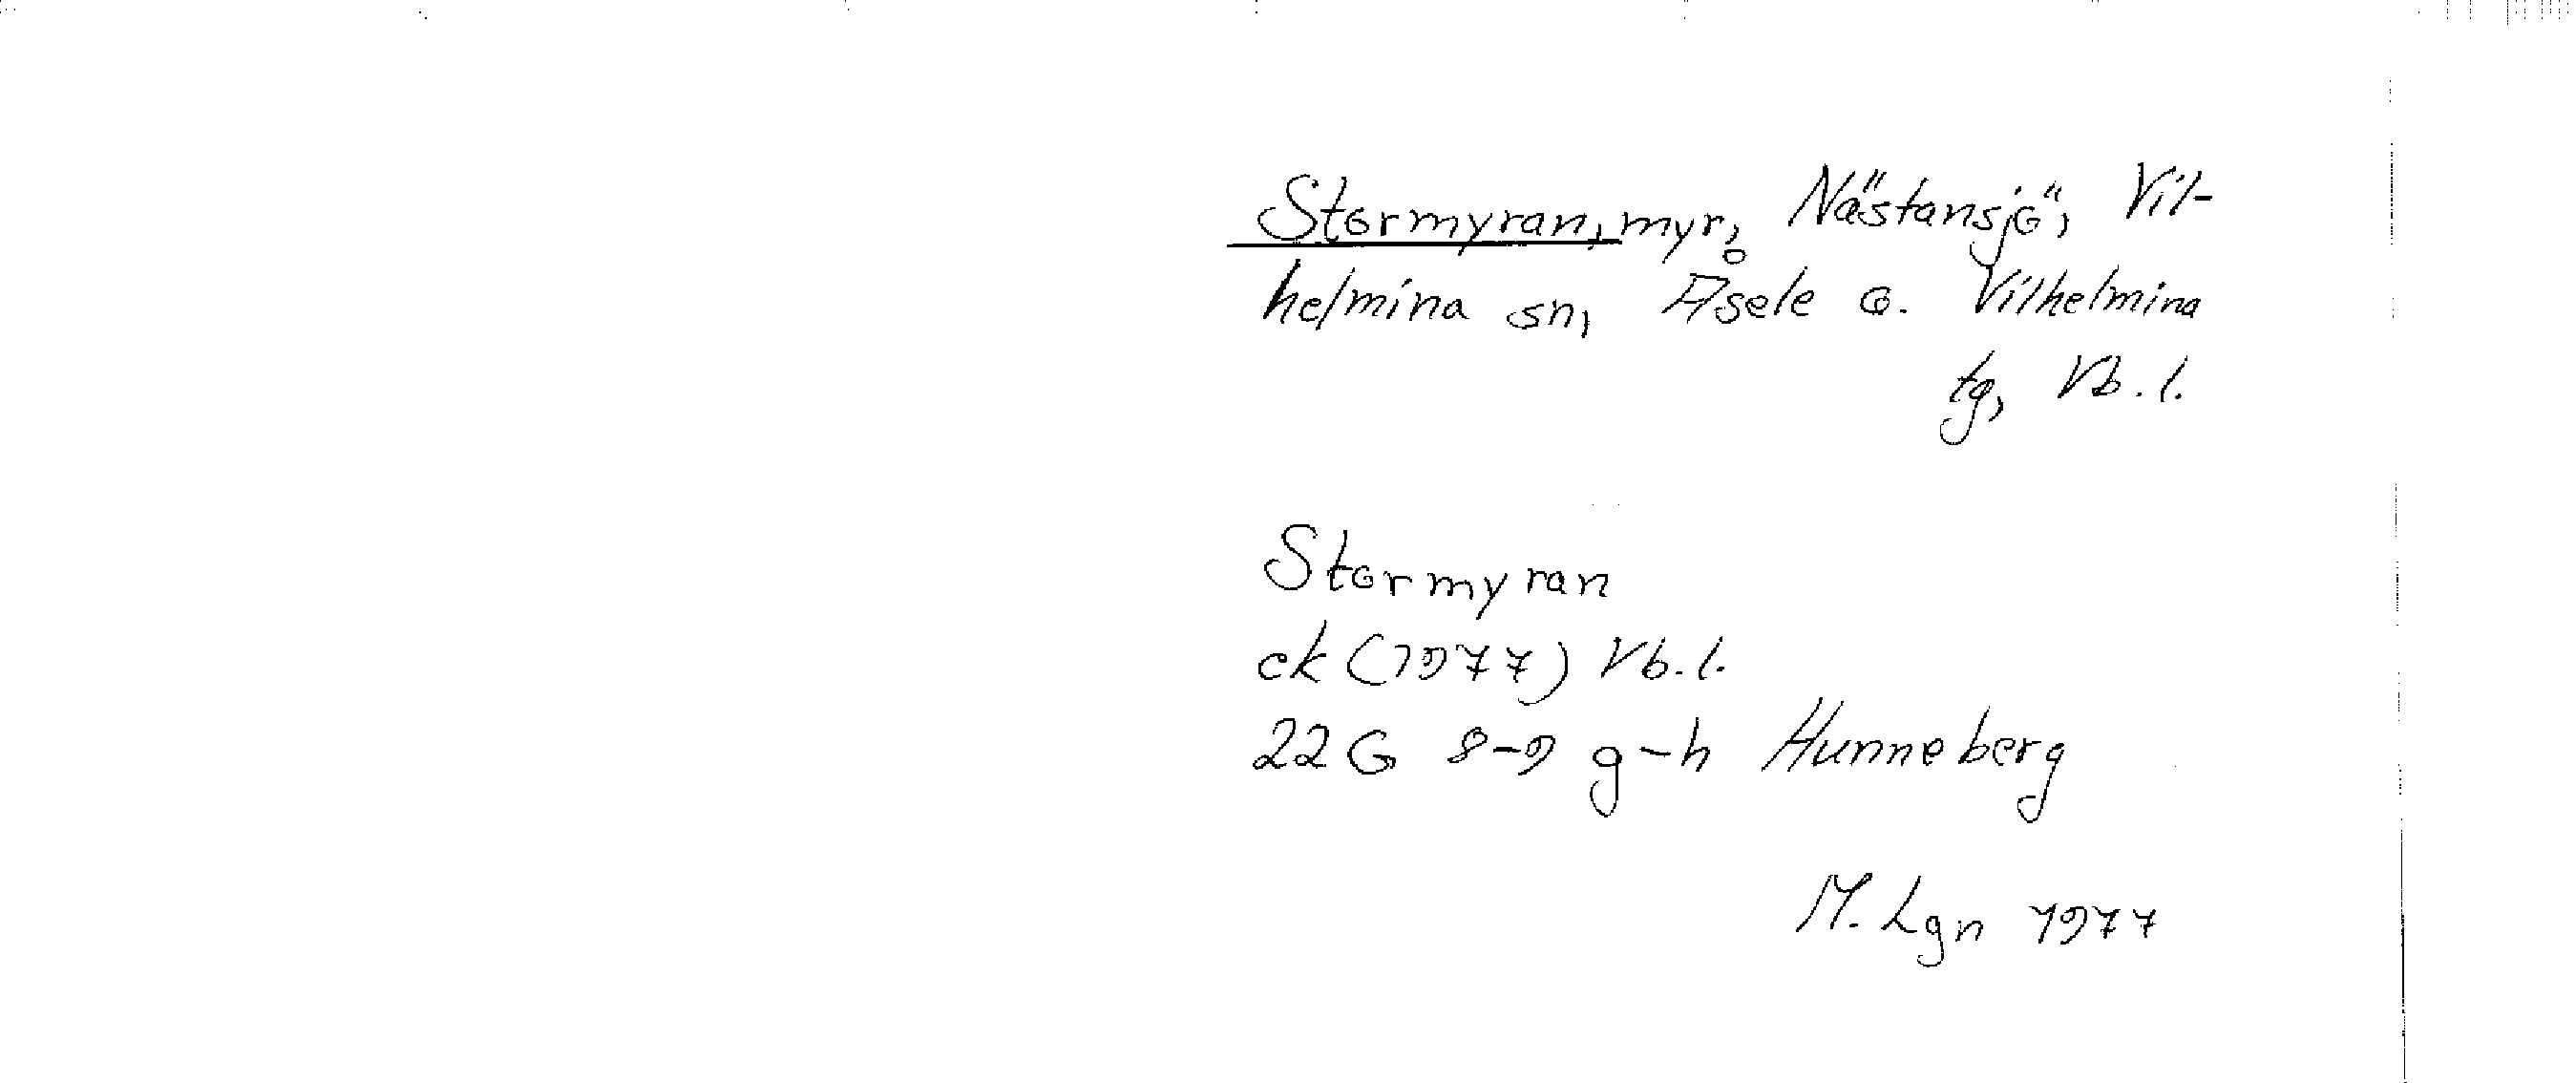 Stormyran, myr, Nästansjö, Vil-
helmina sn, Åsele o. Vilhelmina
tg, Vb. l.
Stormyran
ek (1977) Vb. l.
22 G 8-9 g-h Hunneberg
M. Lgn 1977